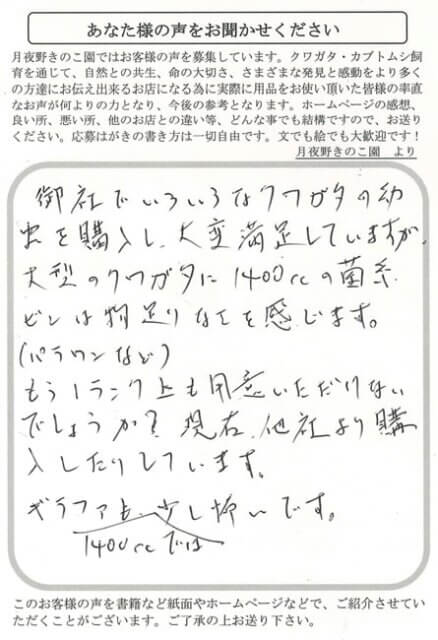 あなた様の声をお聞かせください
月夜野きのこ園ではお客様の声を募集しています。クワガタ・カブトムシ飼
育を通じて、自然との共生、命の大切さ、さまざまな発見と感動をより多く
の方達にお伝え出来るお店になる為に実際に用品をお使い頂いた皆様の率直
なお声が何よりの力となり、今後の参考となります。ホームページの感想、
良い所、悪い所、他のお店との違い等、どんな事でも結構ですので、お送り
ください。応募はがきの書き方は一切自由です。文でも絵でも大歓迎です！
月夜野きのこ園　より
御社でいろいろなクワガタの幼
虫を購入し、大変満足していますが、
大型のクワガタに1400ccの菌糸
ビンは物足りなさを感じます。
(パラワンなど)
もう1ランク上も用意いただけない
でしょうか？現在、他社より購
入したりしています。
ギラファも、少し怖いです。
1400ccでは
このお客様の声を書籍など紙面やホームページなどで、ご紹介させてい
ただくことがございます。ご了承の上お送り下さい。